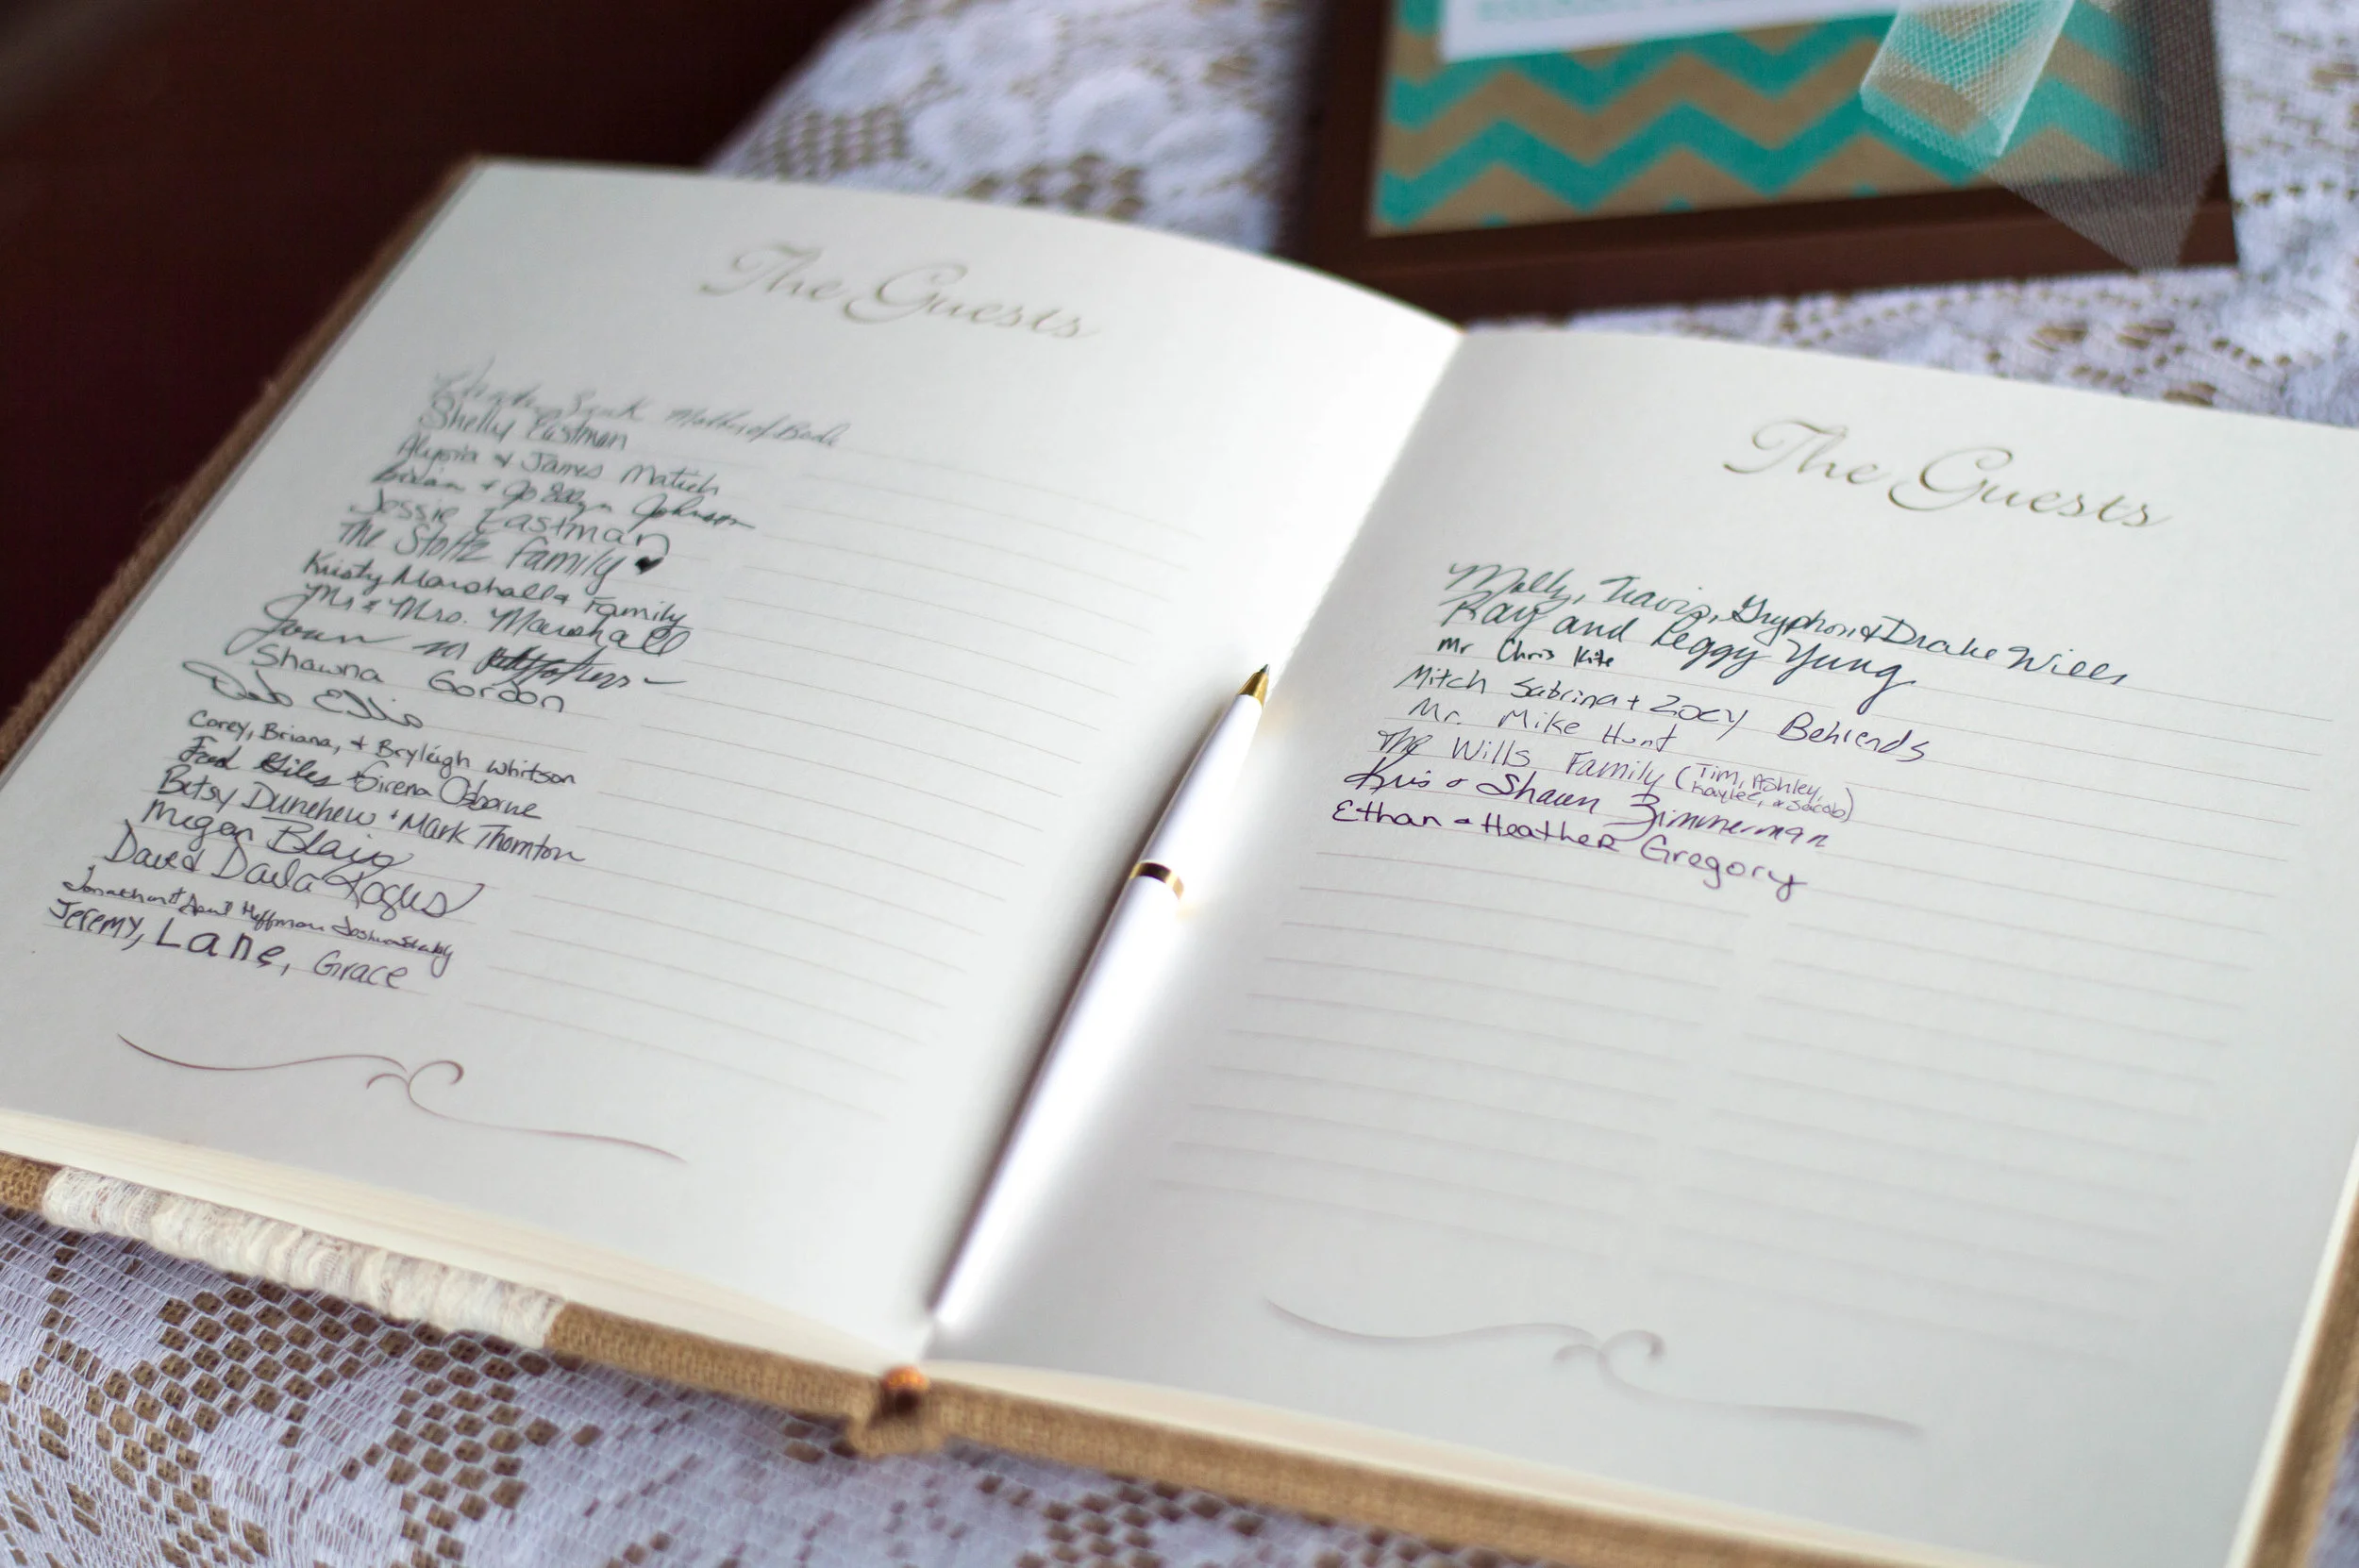 The Guests
Mother of Bride
Shelly Eastman
Alyssia & James Matich
Brian + Johnson
Jessie Eastman
The Stoltz Family ♥
Kristy Marshall & Family
Mr & Mrs. Marshall
Shawna Gordon
Deb Ellis
Corey, Briana, + Bryleigh Whitson
Giles + Sirena Osborne
Betsy Dunehew + Mark Thornton
Megan Blair
David Darla Rogus
Jonathan & April Huffman Joshua
Jeremy, Lane, Grace
The Guests
Molly, Travis, Gryphon & Drake Wills
Ray and Peggy Yung
Mr Chris Kite
Mitch Sabrina + Zoey Behrends
Mr. Mike Hunt
The Wills Family (Tim, Ashley,
Kaylee, & Jacob)
Kris & Shawn Zimmerman
Ethan & Heather Gregory